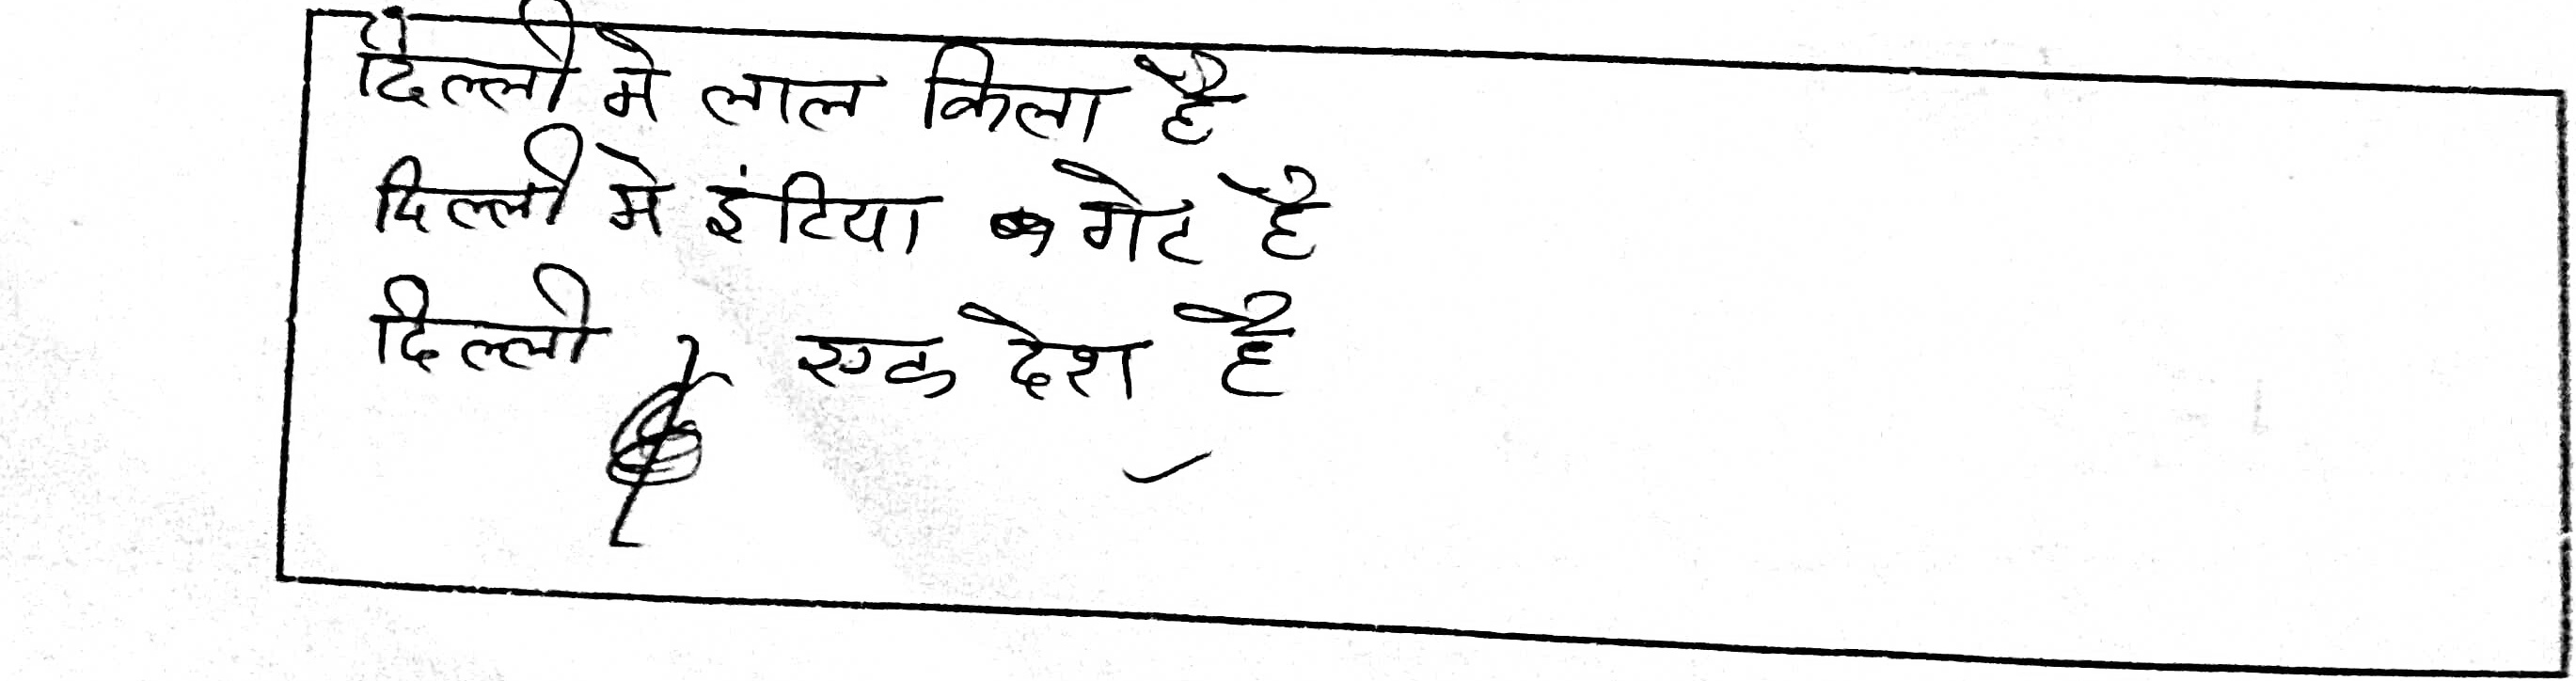 दिल्ली मे लाल किला है
दिल्ली मे इंटिया गेट है
दिल्ली एक देश है